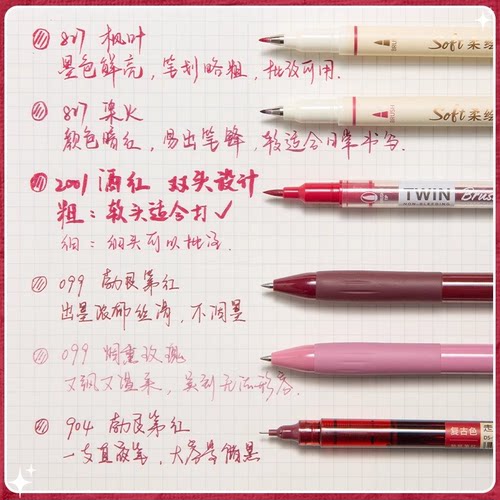 827 枫叶
墨色鲜亮, 笔划略粗, 批改可用.
827 柒火
颜色暗红, 易出笔锋, 较适合日常书写.
2001 酒红 双头设计
粗: 软头适合打✓
细: 细头可以批注.
099 勃艮第红
出墨浓郁丝滑, 不洇墨
099 烟熏玫瑰
又飒又温柔,
904 勃艮第红
一支直液笔, 大容量储墨
Soft 柔绘
Soft 柔绘
TWIN Brush
复古色